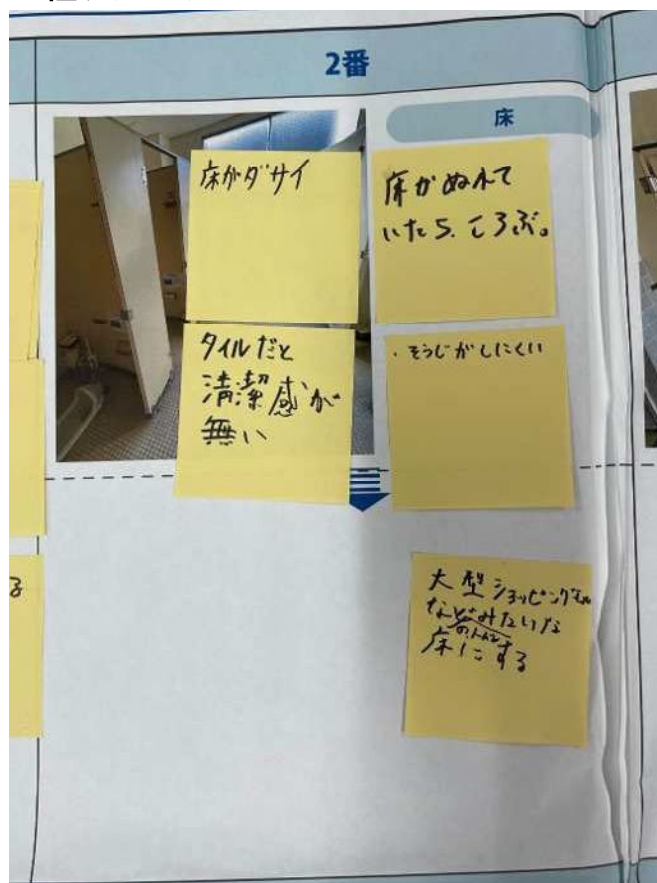 2番
床
床がダサイ
床がぬれて
いたら、ころぶ。
タイルだと
清潔感が
無い
・そうじがしにくい
る
大型ショッピングモール
などみたいな
床にする